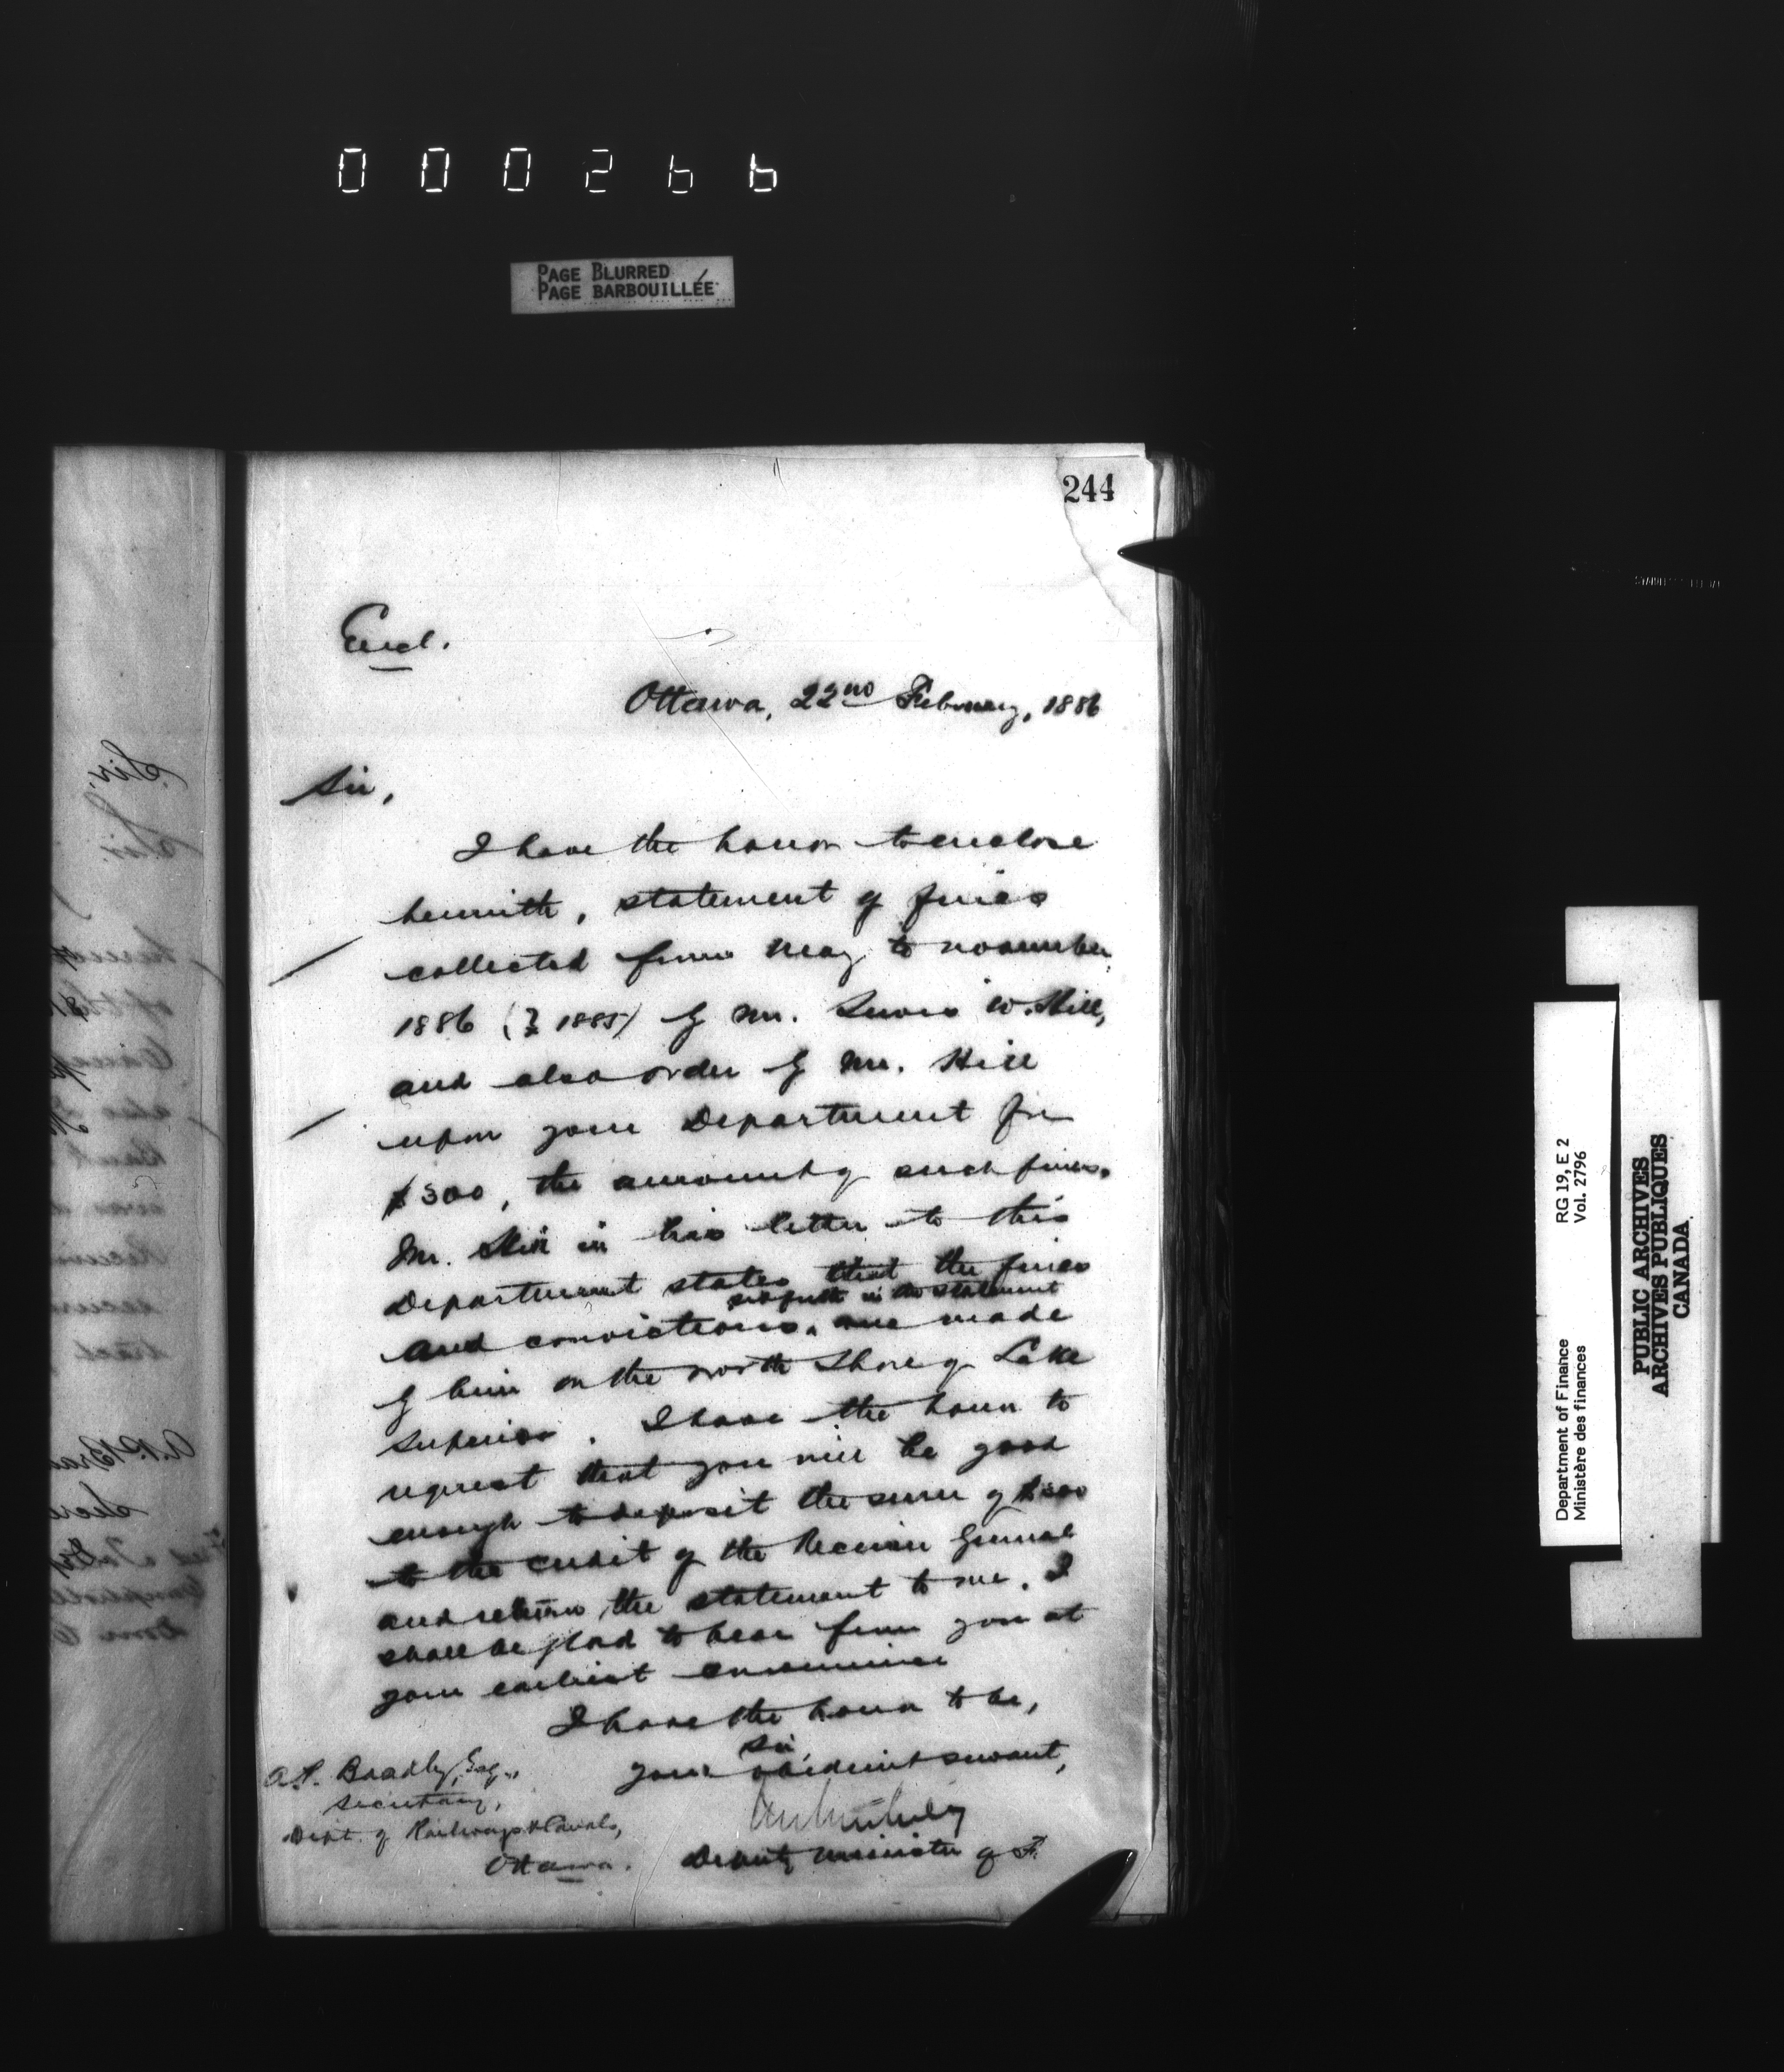 000266
PAGE BLURRED
PAGE BARBOUILLÉE
244
Encl.
Ottawa, 22nd February, 1886
Sir,
I have the honor to enclose
herewith, statement of fines
collected from May to November
1886 (? 1885) by Mr. Lewis W. Hill,
and also order by Mr. Hill
upon your Department for
$300, the amount of such fines.
Mr. Hill in his letter to this
Department states that the fines
set forth in the statement
and convictions, are made
by him on the north Shore of Lake
Superior. I have the honor to
request that you will be good
enough to deposit the sum of $300
to the credit of the Receiver General
and return the statement to me. I
shall be glad to hear from you at
your earliest convenience
I have the honor to be,
Sir,
your obedient servant,
Deputy Minister of F.
A.P. Bradley, Esq.,
Secretary,
Dept. of Railways & Canals,
Ottawa.
Department of Finance RG 19, E 2
Ministère des finances Vol. 2796
PUBLIC ARCHIVES
ARCHIVES PUBLIQUES
CANADA